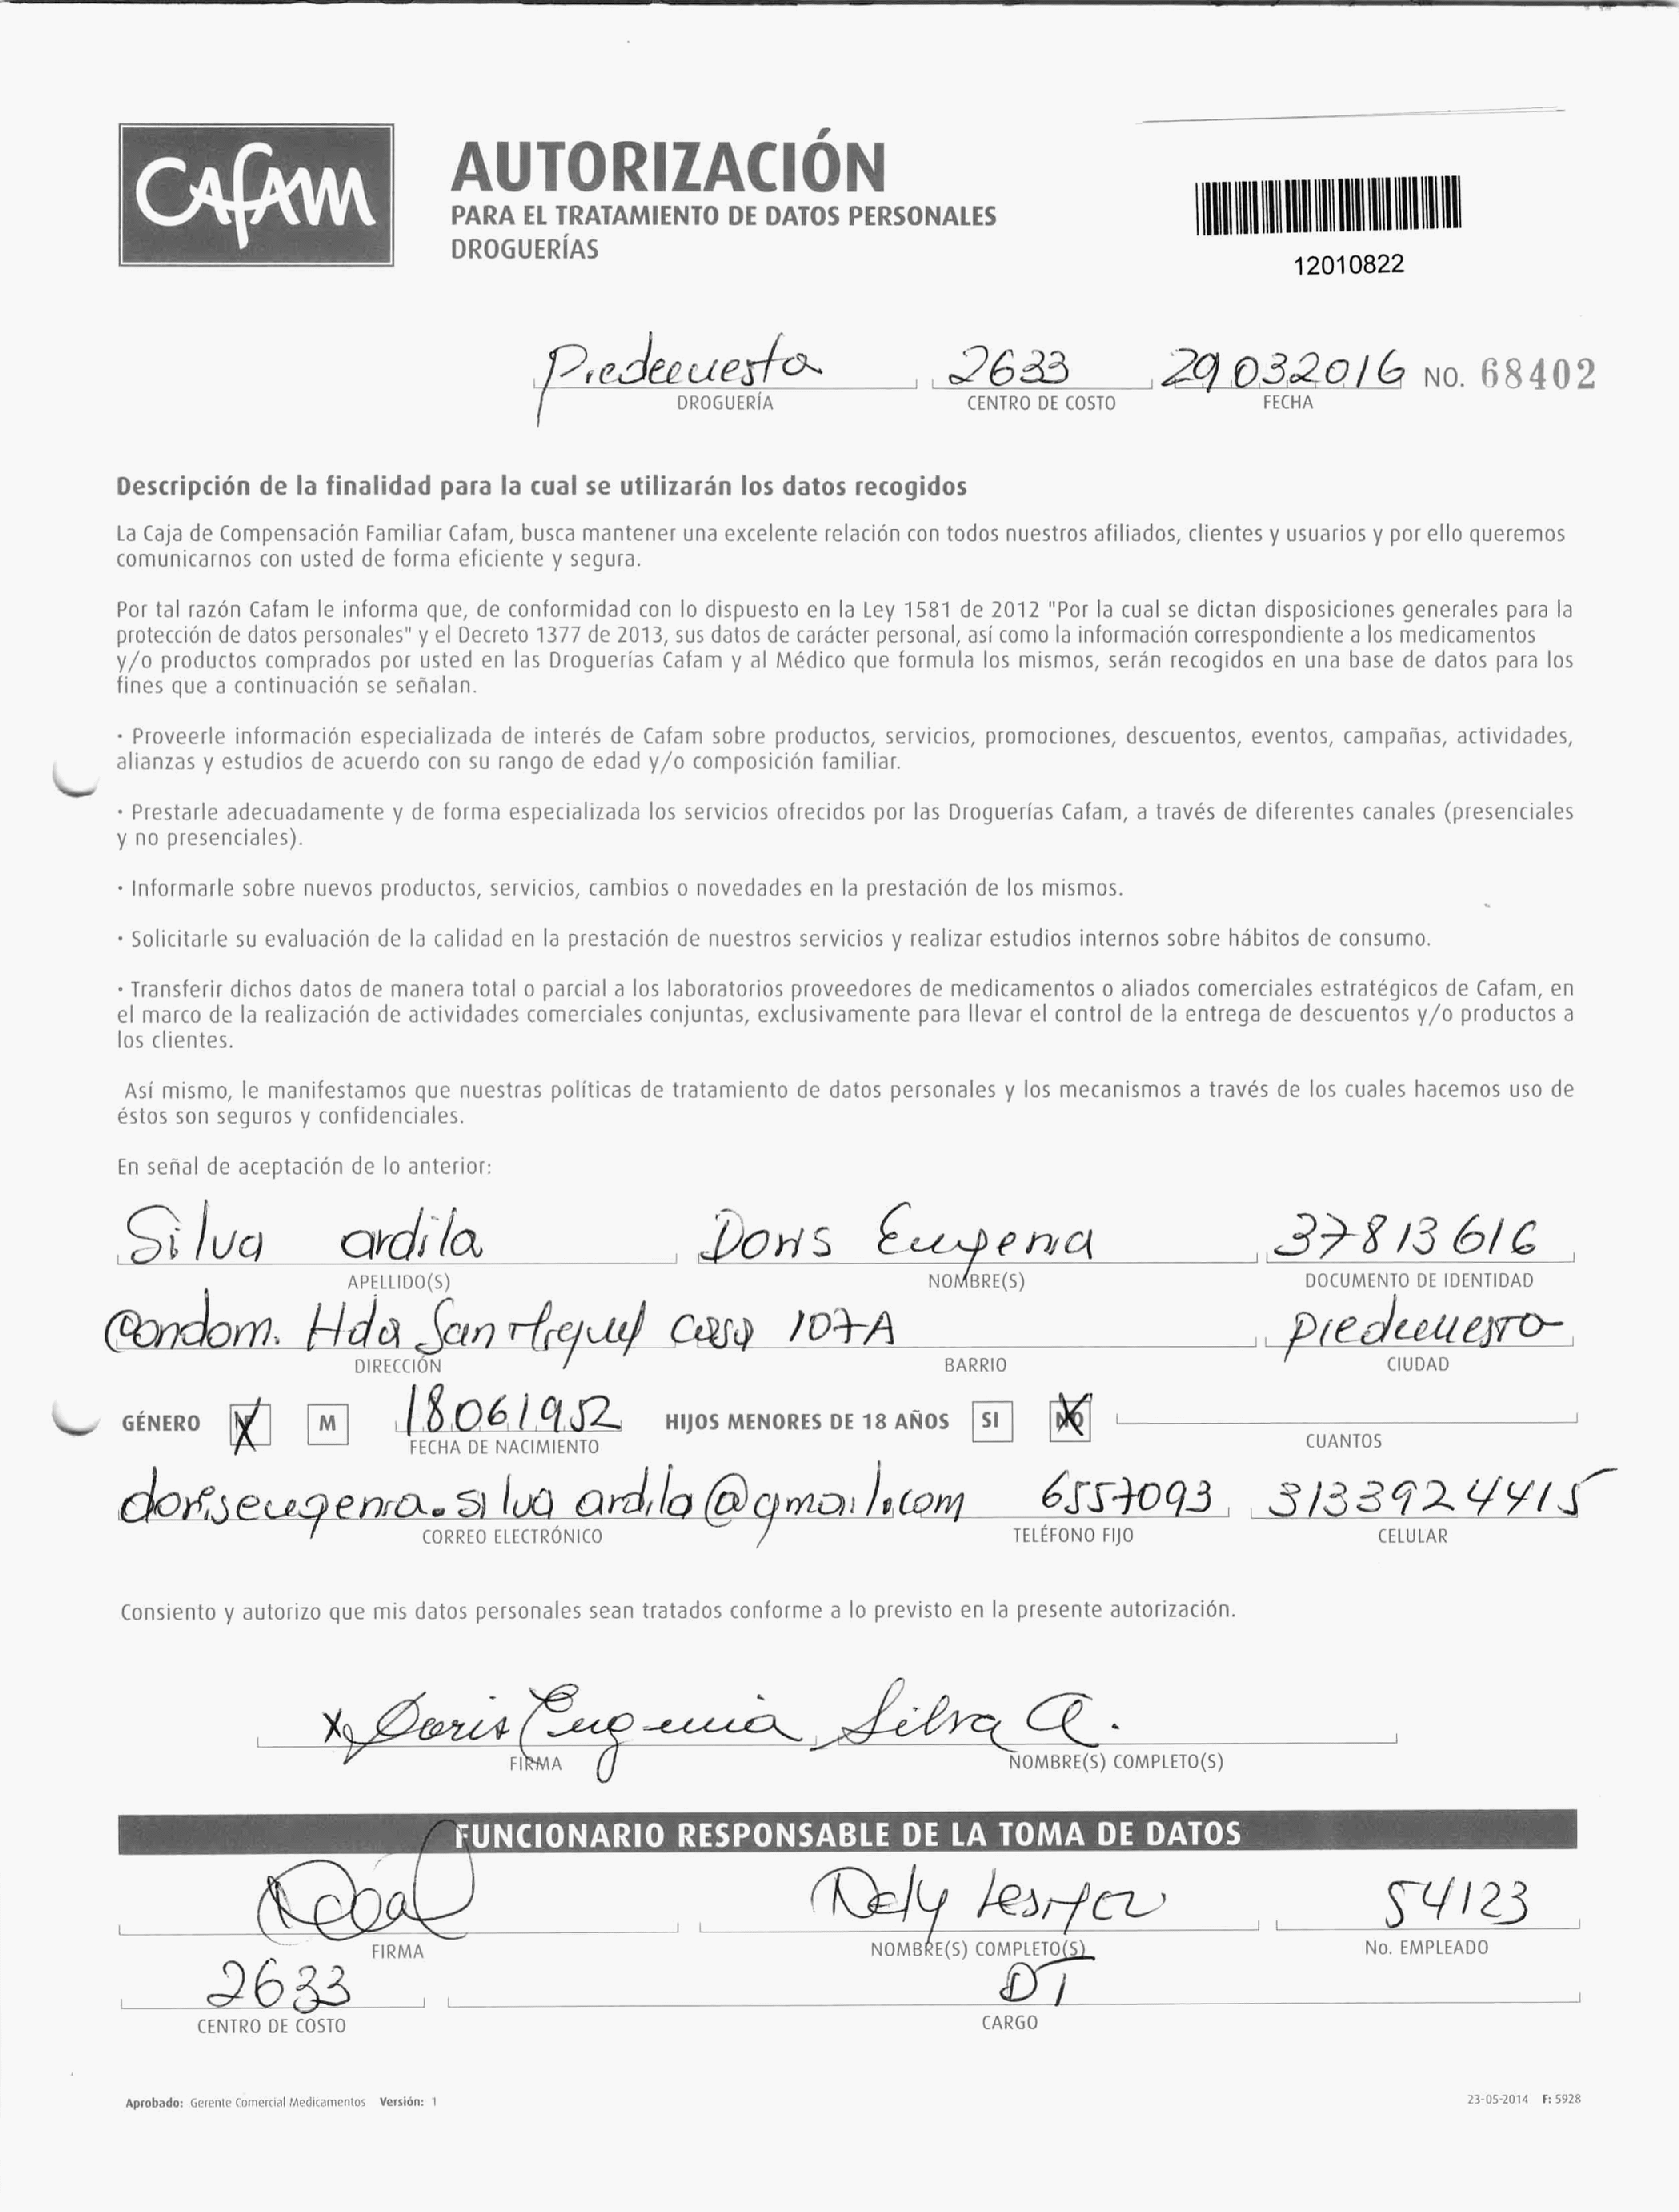 CAFAM
AUTORIZACIÓN
PARA EL TRATAMIENTO DE DATOS PERSONALES
DROGUERÍAS
12010822
Piedecuesta 2633 29032016 NO. 68402
DROGUERÍA CENTRO DE COSTO FECHA
Descripción de la finalidad para la cual se utilizarán los datos recogidos
La Caja de Compensación Familiar Cafam, busca mantener una excelente relación con todos nuestros afiliados, clientes y usuarios y por ello queremos
comunicarnos con usted de forma eficiente y segura.
Por tal razón Cafam le informa que, de conformidad con lo dispuesto en la Ley 1581 de 2012 "Por la cual se dictan disposiciones generales para la
protección de datos personales" y el Decreto 1377 de 2013, sus datos de carácter personal, así como la información correspondiente a los medicamentos
y/o productos comprados por usted en las Droguerías Cafam y al Médico que formula los mismos, serán recogidos en una base de datos para los
fines que a continuación se señalan.
· Proveerle información especializada de interés de Cafam sobre productos, servicios, promociones, descuentos, eventos, campañas, actividades,
alianzas y estudios de acuerdo con su rango de edad y/o composición familiar.
· Prestarle adecuadamente y de forma especializada los servicios ofrecidos por las Droguerías Cafam, a través de diferentes canales (presenciales
y no presenciales).
· Informarle sobre nuevos productos, servicios, cambios o novedades en la prestación de los mismos.
· Solicitarle su evaluación de la calidad en la prestación de nuestros servicios y realizar estudios internos sobre hábitos de consumo.
· Transferir dichos datos de manera total o parcial a los laboratorios proveedores de medicamentos o aliados comerciales estratégicos de Cafam, en
el marco de la realización de actividades comerciales conjuntas, exclusivamente para llevar el control de la entrega de descuentos y/o productos a
los clientes.
Así mismo, le manifestamos que nuestras políticas de tratamiento de datos personales y los mecanismos a través de los cuales hacemos uso de
éstos son seguros y confidenciales.
En señal de aceptación de lo anterior:
Silva ardila Doris Eugenia 37813616
APELLIDO(S) NOMBRE(S) DOCUMENTO DE IDENTIDAD
Condom. Hda San Miguel casa 107A Piedecuesta
DIRECCIÓN BARRIO CIUDAD
GÉNERO X M 18061952 HIJOS MENORES DE 18 AÑOS SI NO
FECHA DE NACIMIENTO CUANTOS
doriseugenia.silvaardila@gmail.com 6557093 3133924415
CORREO ELECTRÓNICO TELÉFONO FIJO CELULAR
Consiento y autorizo que mis datos personales sean tratados conforme a lo previsto en la presente autorización.
x Doris Eugenia Silva A.
FIRMA NOMBRE(S) COMPLETO(S)
FUNCIONARIO RESPONSABLE DE LA TOMA DE DATOS
Nely 54123
FIRMA NOMBRE(S) COMPLETO(S) No. EMPLEADO
2633 DT
CENTRO DE COSTO CARGO
Aprobado: Gerente Comercial Medicamentos Versión: 1 23-05-2014 F: 5928